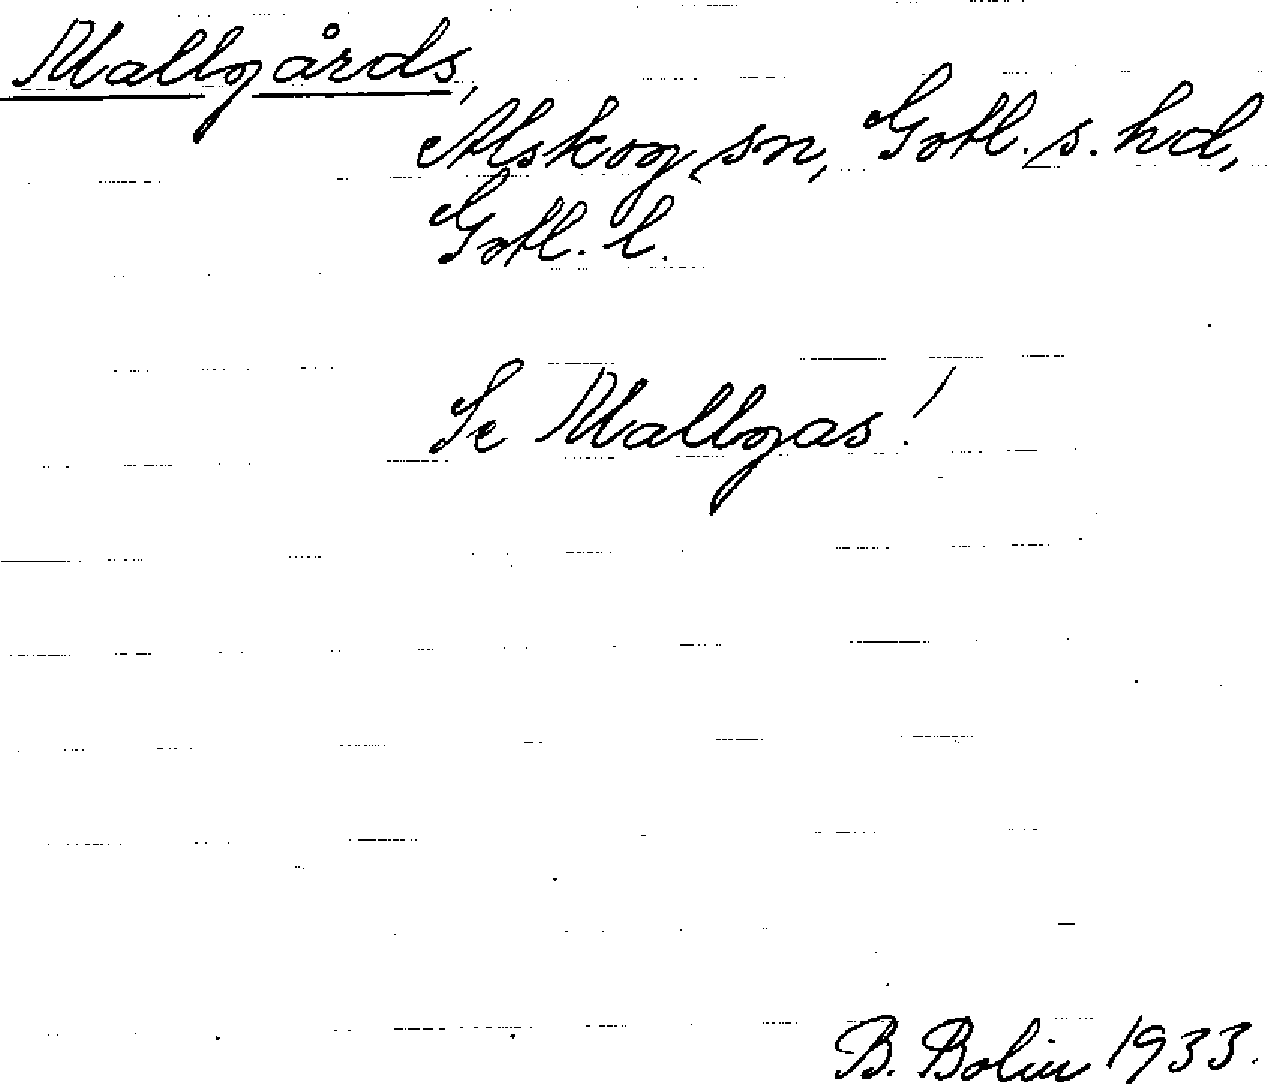 Mallgårds,
Alskog sn, Gotl. s. hd,
Gotl. l.
Se Mallgas!
B. Bolin 1933.